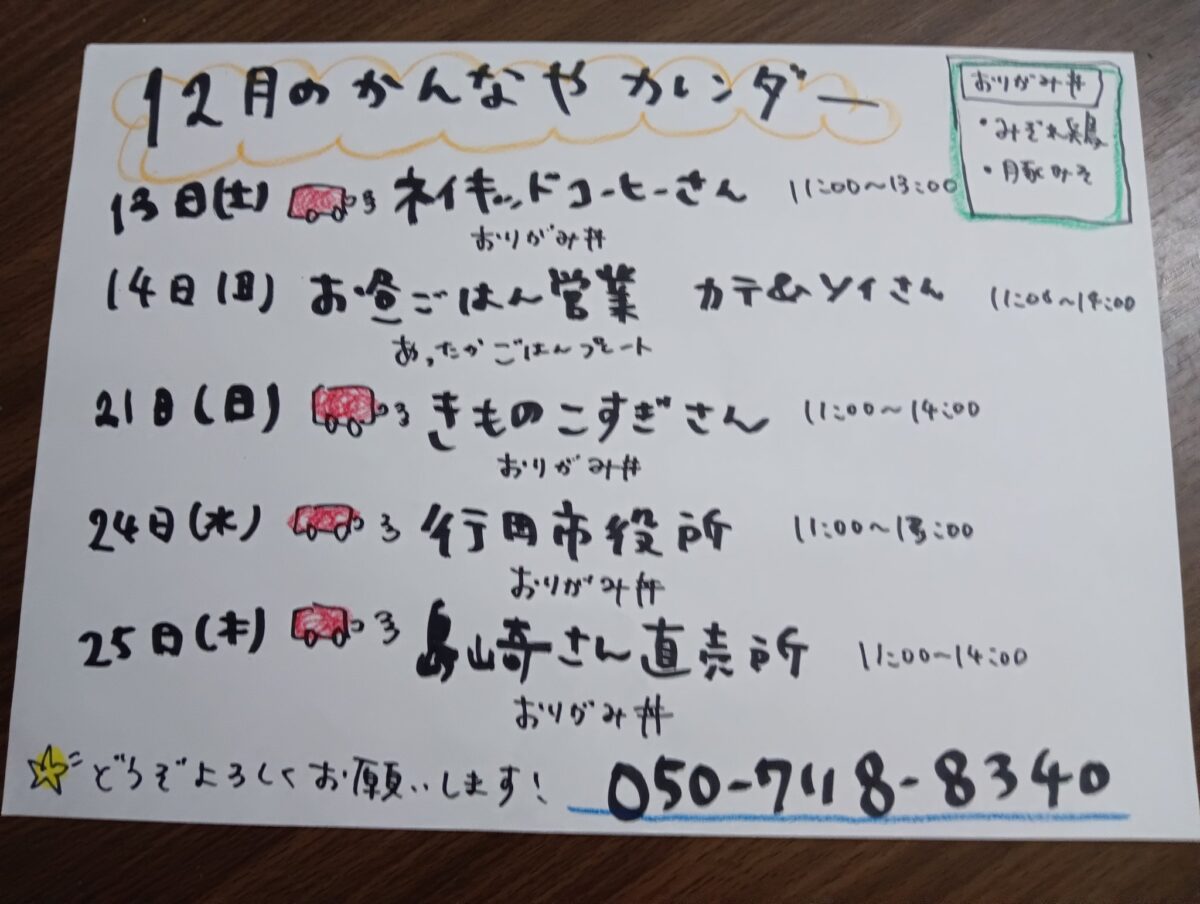 12月のかんなやカレンダー
おりがみ丼
・みぞれ鶏
・豚みそ
13日(土) ネイキッドコーヒーさん 11:00～13:00
おりがみ丼
14日(日) お昼ごはん営業 カテ&ソイさん 11:00～14:00
あったかごはんプレート
21日(日) きものこすぎさん 11:00～14:00
おりがみ丼
24日(水) 行田市役所 11:00～13:00
おりがみ丼
25日(木) 島崎さん直売所 11:00～14:00
おりがみ丼
どうぞよろしくお願いします! 050-7118-8340